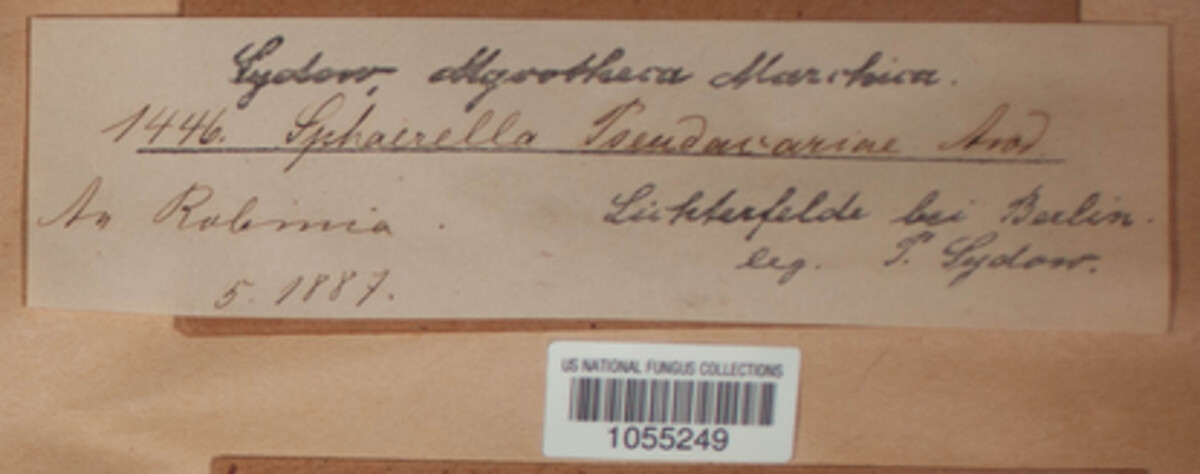 Sydow, Mycotheca Marchica.
1446. Sphaerella Pseudacariae Awd.
An Robinia.
Lichterfelde bei Berlin.
leg. P. Sydow.
5. 1887.
US NATIONAL FUNGUS COLLECTIONS
1055249